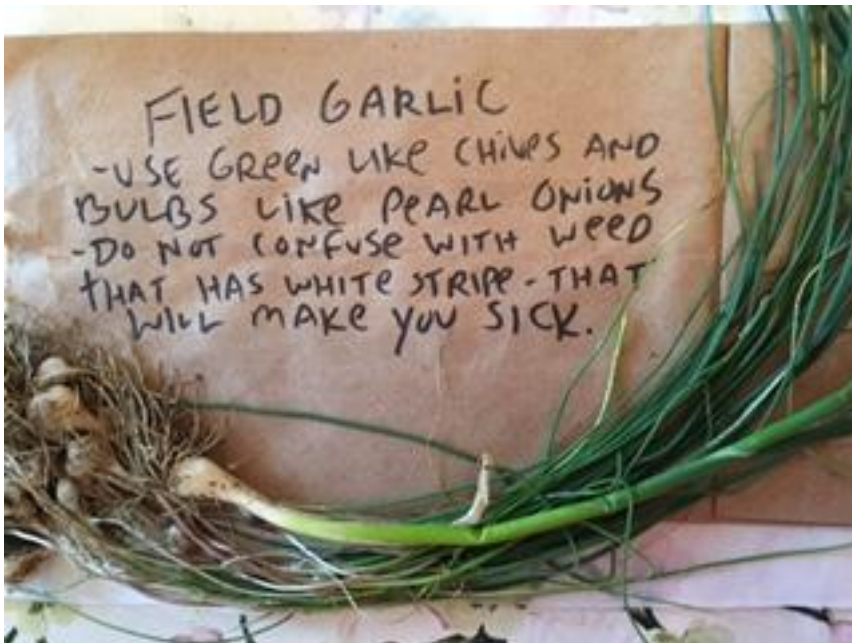 FIELD GARLIC
-USE GREEN LIKE CHIVES AND
BULBS LIKE PEARL ONIONS
-DO NOT CONFUSE WITH WEED
THAT HAS WHITE STRIPE-THAT
WILL MAKE YOU SICK.